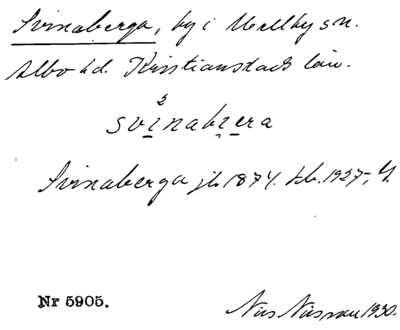 Svinaberga, by i Mellby sn.
Albo hd. Kristianstads län.
2
svinabiera
Svinaberga jb. 1874. tb. 1927-,
Nr 5905.
Nils 1930.